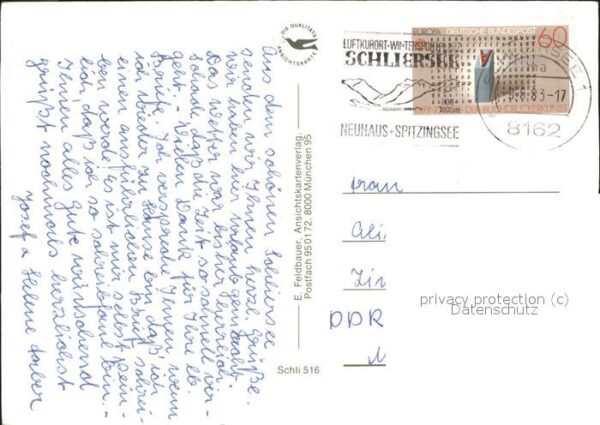 Aus dem schönen Schliersee
senden wir Ihnen herzl. Grüße.
wir haben hier Urlaub gemacht.
Das Wetter war bisher herrlich
schade, daß die Zeit so schnell ver-
geht. - Vielen Dank für Ihre lb.
Briefe. Ich verspreche Ihnen, wenn
ich wieder zu Hause bin, daß ich
einen ausführlichen Brief schrei-
ben werde. Es ist mir selbst pein-
lich, daß ich so schreibfaul bin. -
Ihnen alles Gute wünschend
grüßt nochmals herzlichst
Josef u. Helene
DIE QUALITÄTS
ANSICHTSKARTE
E. Feldbauer, Ansichtskartenverlag,
Postfach 950172, 8000 München 95
Schli 516
LUFTKURORT-WINTERSPORT
SCHLIERSEE
800-
NEUHAUS+SPITZINGSEE
EUROPA DEUTSCHE BUNDESPOST
60
83-17
8162
Frau
DDR
privacy protection (c)
Datenschutz